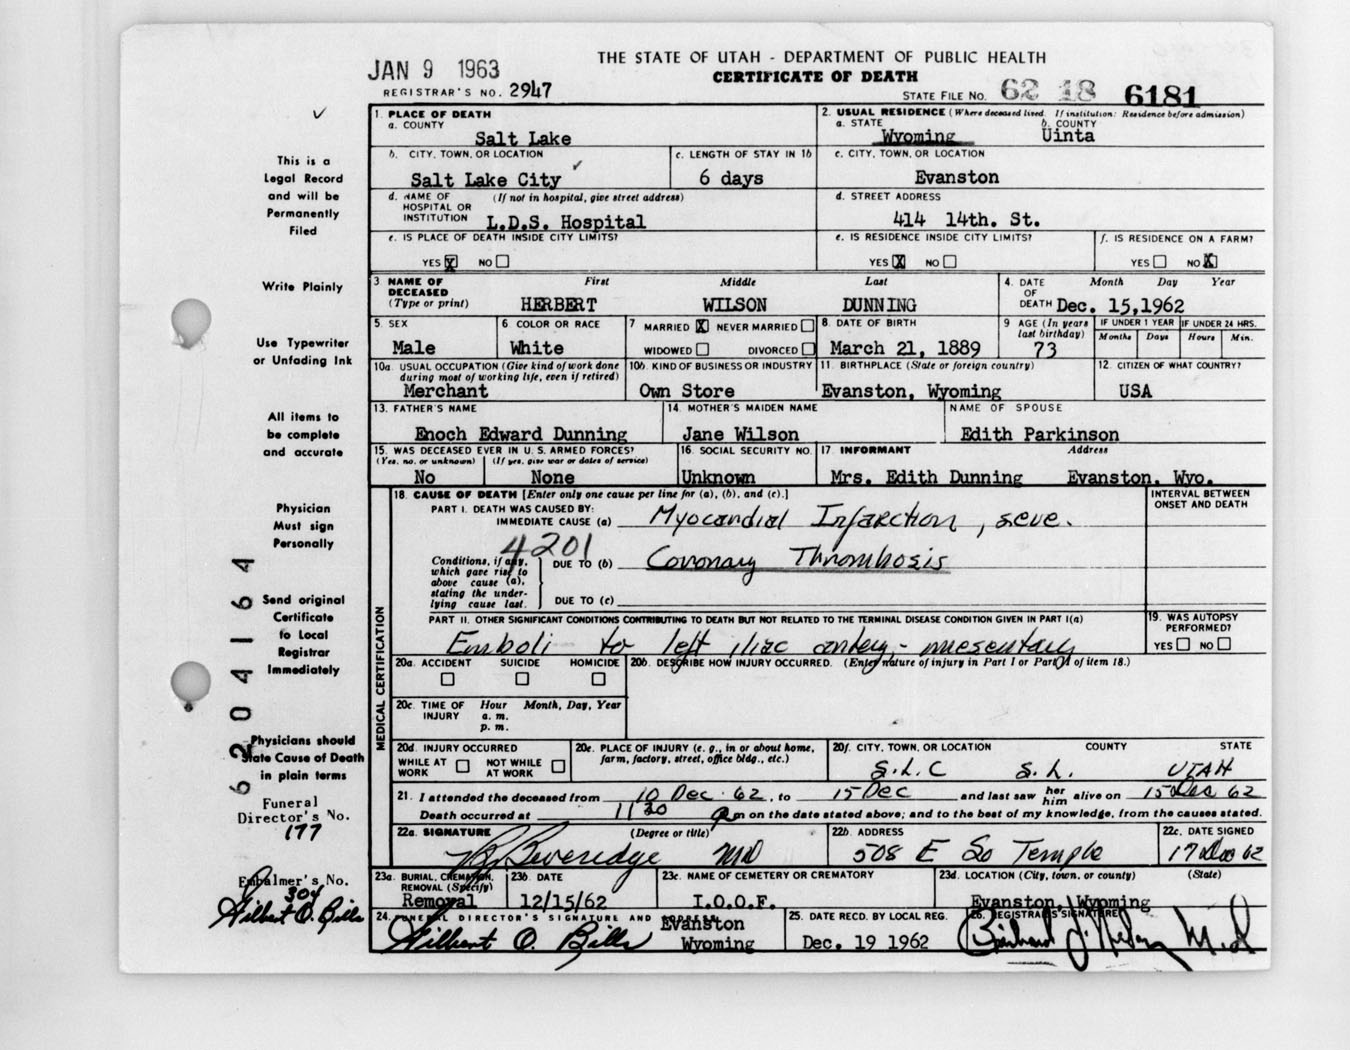 THE STATE OF UTAH - DEPARTMENT OF PUBLIC HEALTH
JAN 9 1963
CERTIFICATE OF DEATH
REGISTRAR'S NO. 2947
STATE FILE NO. 62 18 6181
1. PLACE OF DEATH
a. COUNTY
Salt Lake
2. USUAL RESIDENCE (Where deceased lived. If institution: Residence before admission)
a. STATE
Wyoming
b. COUNTY
Uinta
b. CITY, TOWN, OR LOCATION
Salt Lake City
c. LENGTH OF STAY IN 1b
6 days
c. CITY, TOWN, OR LOCATION
Evanston
d. NAME OF HOSPITAL OR INSTITUTION
(If not in hospital, give street address)
L.D.S. Hospital
d. STREET ADDRESS
414 14th. St.
e. IS PLACE OF DEATH INSIDE CITY LIMITS?
YES X NO
e. IS RESIDENCE INSIDE CITY LIMITS?
YES X NO
f. IS RESIDENCE ON A FARM?
YES NO X
3 NAME OF DECEASED
(Type or print)
First Middle Last
HERBERT WILSON DUNNING
4. DATE OF DEATH
Month Day Year
Dec. 15,1962
5. SEX
Male
6 COLOR OR RACE
White
7 MARRIED X NEVER MARRIED
WIDOWED DIVORCED
8. DATE OF BIRTH
March 21, 1889
9 AGE (In years last birthday)
73
IF UNDER 1 YEAR
Months Days
IF UNDER 24 HRS.
Hours Min.
10a. USUAL OCCUPATION (Give kind of work done during most of working life, even if retired)
Merchant
10b. KIND OF BUSINESS OR INDUSTRY
Own Store
11. BIRTHPLACE (State or foreign country)
Evanston, Wyoming
12. CITIZEN OF WHAT COUNTRY?
USA
13. FATHER'S NAME
Enoch Edward Dunning
14. MOTHER'S MAIDEN NAME
Jane Wilson
NAME OF SPOUSE
Edith Parkinson
15. WAS DECEASED EVER IN U.S. ARMED FORCES?
(Yes, no, or unknown) (If yes, give war or dates of service)
No None
16. SOCIAL SECURITY NO.
Unknown
17. INFORMANT Address
Mrs. Edith Dunning Evanston, Wyo.
MEDICAL CERTIFICATION
18. CAUSE OF DEATH [Enter only one cause per line for (a), (b), and (c).]
INTERVAL BETWEEN ONSET AND DEATH
PART I. DEATH WAS CAUSED BY:
IMMEDIATE CAUSE (a) Myocardial Infarction, seve.
4201
Conditions, if any, which gave rise to above cause (a), stating the underlying cause last.
DUE TO (b) Coronary Thrombosis
DUE TO (c)
PART II. OTHER SIGNIFICANT CONDITIONS CONTRIBUTING TO DEATH BUT NOT RELATED TO THE TERMINAL DISEASE CONDITION GIVEN IN PART I(a)
Emboli to left iliac artery, - mesentary
19. WAS AUTOPSY PERFORMED?
YES NO
20a. ACCIDENT SUICIDE HOMICIDE
20b. DESCRIBE HOW INJURY OCCURRED. (Enter nature of injury in Part I or Part II of item 18.)
20c. TIME OF INJURY
Hour Month, Day, Year
a. m.
p. m.
20d. INJURY OCCURRED
WHILE AT WORK NOT WHILE AT WORK
20e. PLACE OF INJURY (e. g., in or about home, farm, factory, street, office bldg., etc.)
20f. CITY, TOWN, OR LOCATION COUNTY STATE
S.L.C S.L. UTAH
21. I attended the deceased from 10 Dec. 62, to 15 Dec and last saw her him alive on 15 Dec 62
Death occurred at 11 20 m on the date stated above; and to the best of my knowledge, from the causes stated.
22a. SIGNATURE (Degree or title)
Beveredge MD
22b. ADDRESS
508 E So Temple
22c. DATE SIGNED
17 Dec 62
23a. BURIAL, CREMATION, REMOVAL (Specify)
Removal
23b. DATE
12/15/62
23c. NAME OF CEMETERY OR CREMATORY
I.O.O.F.
23d. LOCATION (City, town, or county) (State)
Evanston, Wyoming
24. FUNERAL DIRECTOR'S SIGNATURE AND ADDRESS
Gilbert O. Bills
Evanston
Wyoming
25. DATE RECD. BY LOCAL REG.
Dec. 19 1962
26. REGISTRAR'S SIGNATURE
This is a
Legal Record
and will be
Permanently
Filed
Write Plainly
Use Typewriter
or Unfading Ink
All items to
be complete
and accurate
Physician
Must sign
Personally
Send original
Certificate
to Local
Registrar
Immediately
Physicians should
State Cause of Death
in plain terms
Funeral
Director's No.
177
Embalmer's No.
304
Gilbert O. Bills
6204164